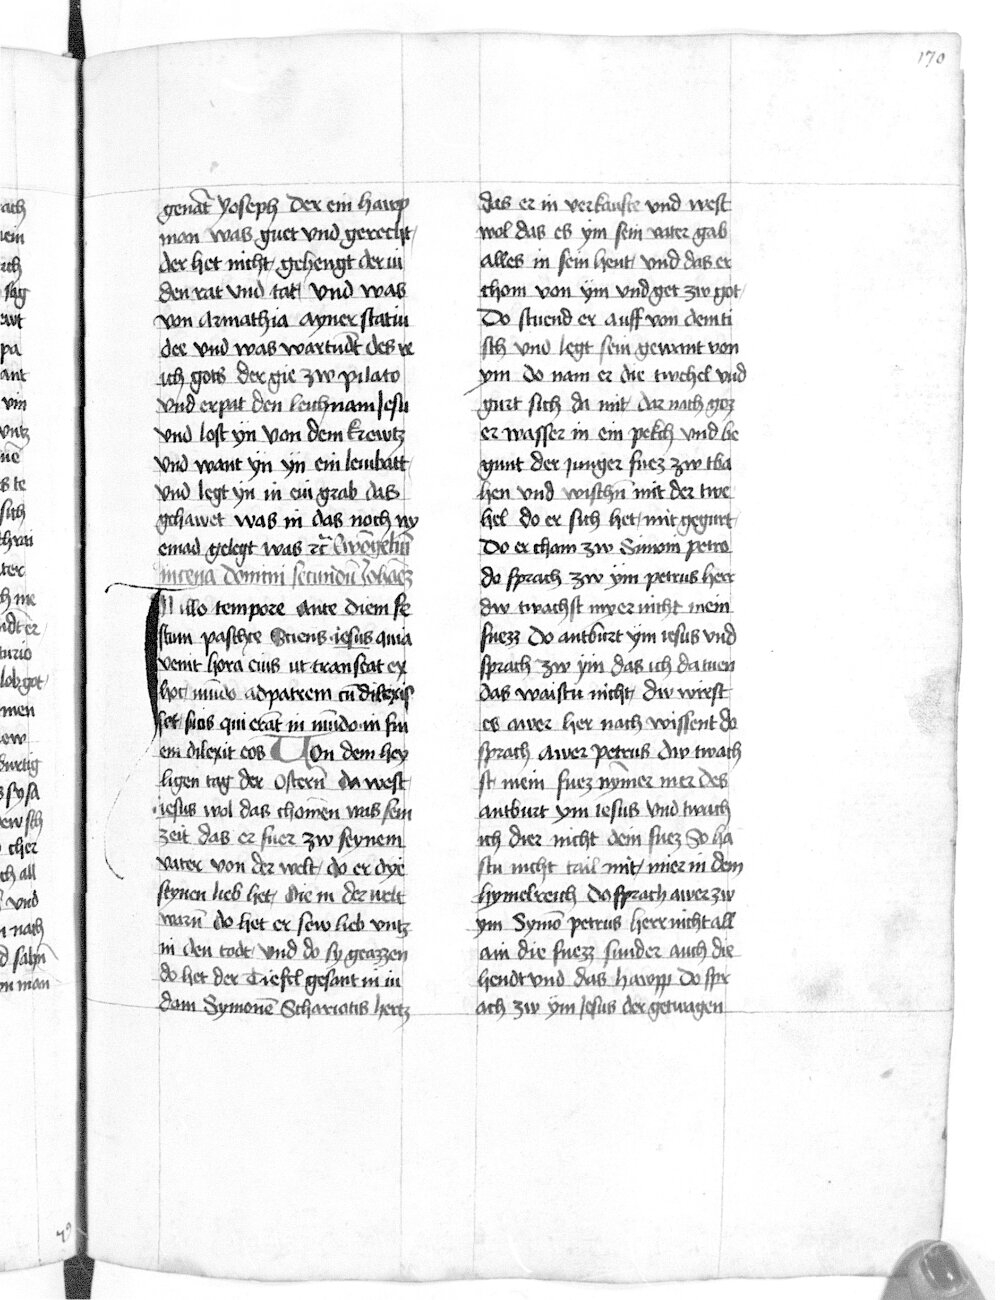 170
genāt Yoseph Der ein hawp
man was guet vnd gerecht
der het nicht gehengt der in
den rat vnd tat vnd was
von Armathia ayner statin
dee vnd was wartundt des re
ich gots der gie zw pilato
vnd erpat den leichnam Jesu
vnd lost yn von dem krewtz
vnd want yn yn ein leinbatt
vnd legt yn in ein grab das
gehawet was in das noch ny
emad gelegt was ꝛc̄ Ewāgeliū
in cena domini secundū Johāēz
In illo tempore Ante diem fe
stum pasche Sciens iesus quia
venit hora eius ut transeat ex
hoc mūdo ad patrem cū dilexis
set suis qui erāt in mūdo in fin
em dilexit eos Von dem hey
ligen tag der Ostern̄ da west
iesus wol das chomen was sein
zeit das er fuer zw seynem
vater von der welt do er dye
seynen lieb het die in der welt
warn̄ do het er sew lieb vntz
in den todt vnd do sy geazzen
do het der Tiefel gesant in iu
dam Symonē Schariotis hertz
das er in verkaufte vnd west
wol das es ym sein vater gab
alles in sein hent vnd das er
chom von ym vnd get zw got
Do stuend er auff von dem ti
sch vnd legt sein gewant von
ym do nam er die twehel vnd
gurt sich da mit dar nach goz
er wasser in ein pekch vnd be
gunt der junger fuez zw twa
hen vnd wischn̄ mit der twe
hel do er sich het mit gegurt
Do er cham zw Simom petro
do sprach zw ym petrus herr
dw twachst myer nicht mein
fuezz Do antburt ym iesus vnd
sprach zw ym das ich da tuen
das waistu nicht dw wirst
es awer her nach wissent do
sprach awer petrus dw twach
st mein fuez nȳmer mer des
antburt ym iesus vnd twach
ich dier nicht dein fuez So ha
stu nicht tail mit mier in dem
hymelreich do sprach awer zw
ym Symō petrus herr nicht all
ain die fuezz sunder auch die
hendt vnd das hawpp Do spr
ach zw ym Jesus der getwagen